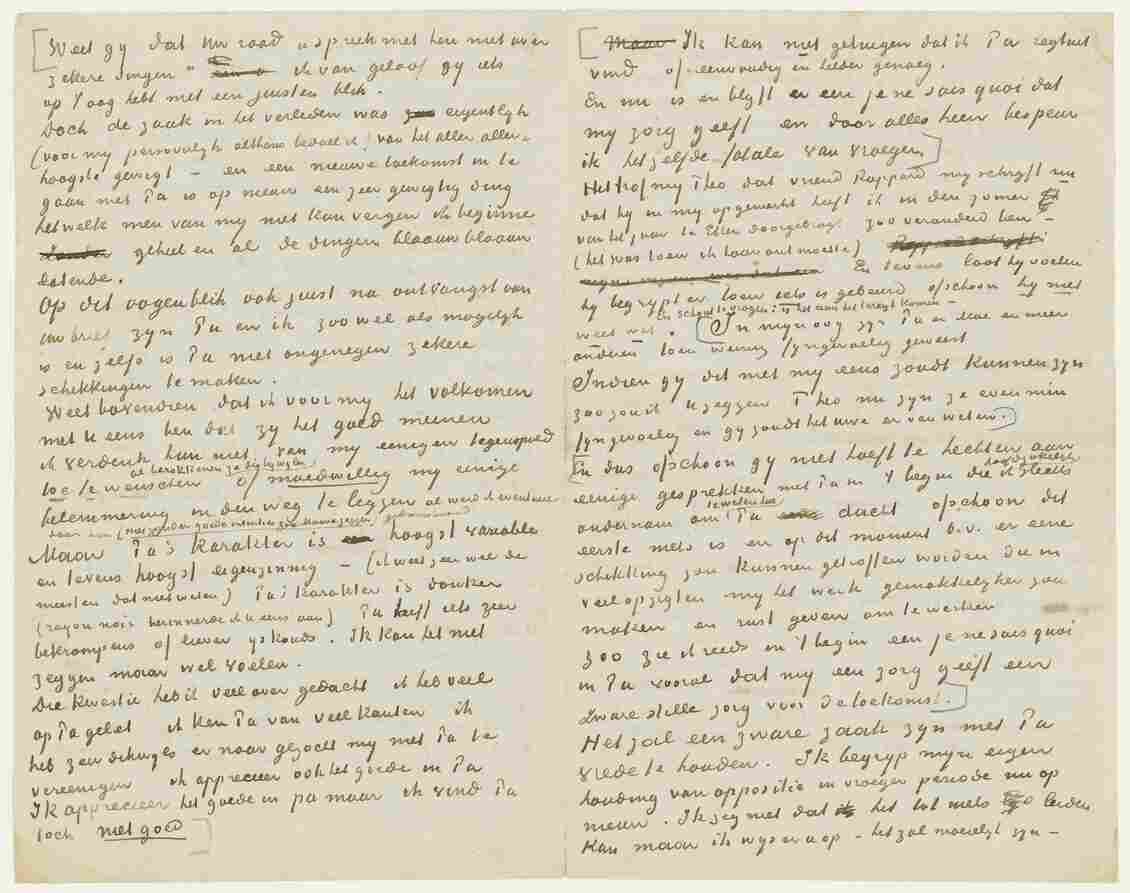 Weet gy dat uw raad "spreek met hen niet over
zekere dingen" ik van geloof gy iets
op 't oog hebt met een juisten blik.
Doch de zaak in het verleden was eigentlyk
(voor my persoonlyk althans bedoel ik) van het aller aller-
hoogste gewigt – en een nieuwe toekomst in te
gaan met Pa is op nieuw een zeer gewigtig ding
hetwelk men van my niet kan vergen ik beginne
geheel en al de dingen blaauw blaauw
latende.
Op dit oogenblik ook juist na ontvangst van
uw brief zyn Pa en ik zoo wel als mogelyk
is en zelfs is Pa niet ongenegen zekere
schikkingen te maken.
Weet bovendien dat ik voor my het volkomen
met U eens ben dat zy het goed meenen
ik verdenk hun niet van my eenigen tegenspoed
toe te wenschen of moedwillig my eenige
belemmering in den weg te leggen
Maar Pa's karakter is hoogst variable
en tevens hoogst eigenzinnig – (ik weet zeer wel de
meesten dat niet weten) Pa's karakter is donker
(rayon noir herinnerde ik U eens aan) Pa heeft iets zeer
bekrompens of liever yskouds. Ik kan het niet
zeggen maar wel voelen.
Die kwestie heb ik veel over gedacht ik heb veel
op Pa gelet ik ken Pa van veel kanten ik
heb zeer dikwyls er naar gezocht my met Pa te
vereenigen ik apprecieer ook het goede in Pa
Ik apprecieer het goede in pa maar ik vind Pa
toch niet goed
Maar Ik kan niet getuigen dat ik Pa regtuit
vind of eenvoudig en helder genoeg.
En nu is en blyft er een je ne sais quoi dat
my zorg geeft en door alles heen bespeur
ik het zelfde fatale van vroeger.
Het trof my Theo dat vriend Rappard my schryft nu
dat hy in my opgemerkt heeft ik in den zomer
van het jaar te Etten doorgebragt zoo veranderd ben –
(het was toen ik daar ont moeste)
En tevens laat hy voelen
hy begrypt er toen iets is gebeurd ofschoon hy niet
weet wat. In myn oog zyn Pa en Moe en meer
anderen toen weinig fyngevoelig geweest
Indien gy dit met my eens zoudt kunnen zyn
zoo zou ik U zeggen Theo nu zyn ze evenmin
fyngevoelig en gy zoudt het uwe er van weten.
En dus ofschoon gy niet hoeft te hechten aan
eenige gesprekken met Pa in 't begin die ik slechts
ondernam om Pa dacht ofschoon dit
eerste niets is en op dit moment b.v. er eene
schikking zou kunnen getroffen worden die in
veel opzigten my het werk gemakkelyker zou
maken en rust geven om te werken
zoo zie ik reeds in 't begin een je ne sais quoi
in Pa vooral dat my een zorg geeft een
zware stille zorg voor de toekomst.
Het zal een zware zaak zyn met Pa
vrede te houden. Ik begryp myn eigen
houding van oppositie in vroeger periode nu op
nieuw. Ik zeg niet dat het tot niets leiden
kan maar ik wys er u op – het zal moeielyk zyn –